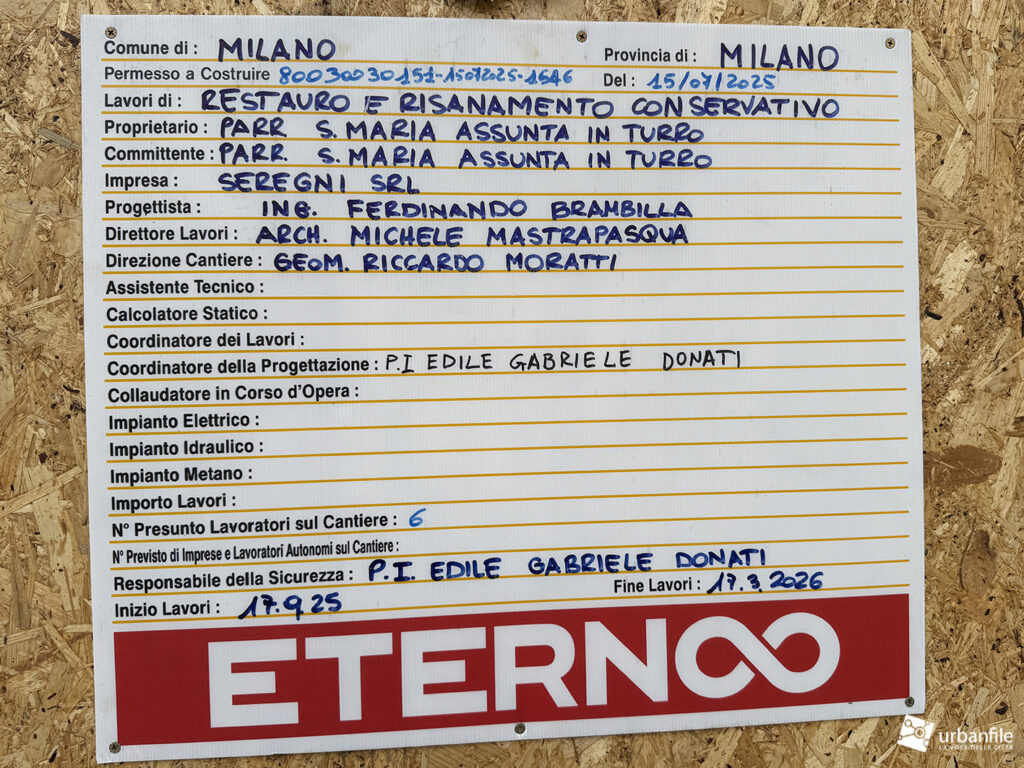 Comune di : MILANO Provincia di : MILANO
Permesso a Costruire 80030030151-15072025-1646 Del : 15/07/2025
Lavori di : RESTAURO E RISANAMENTO CONSERVATIVO
Proprietario : PARR S. MARIA ASSUNTA IN TURRO
Committente : PARR. S. MARIA ASSUNTA IN TURRO
Impresa : SEREGNI SRL
Progettista : ING. FERDINANDO BRAMBILLA
Direttore Lavori : ARCH. MICHELE MASTRAPASQUA
Direzione Cantiere : GEOM. RICCARDO MORATTI
Assistente Tecnico :
Calcolatore Statico :
Coordinatore dei Lavori :
Coordinatore della Progettazione : P.I EDILE GABRIELE DONATI
Collaudatore in Corso d'Opera :
Impianto Elettrico :
Impianto Idraulico :
Impianto Metano :
Importo Lavori :
N° Presunto Lavoratori sul Cantiere : 6
N° Previsto di Imprese e Lavoratori Autonomi sul Cantiere :
Responsabile della Sicurezza : P.I. EDILE GABRIELE DONATI
Inizio Lavori : 17.9.25 Fine Lavori : 17.3.2026
ETERNOO
urbanfile
LA VOCE DELLE CITTÀ